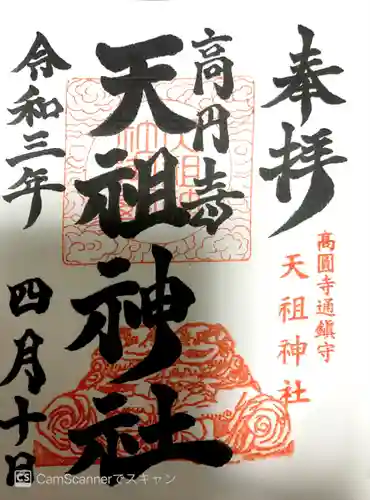 奉拝
高圓寺通鎮守
天祖神社
高円寺
天祖神社
令和三年
四月十日
CS CamScannerでスキャン